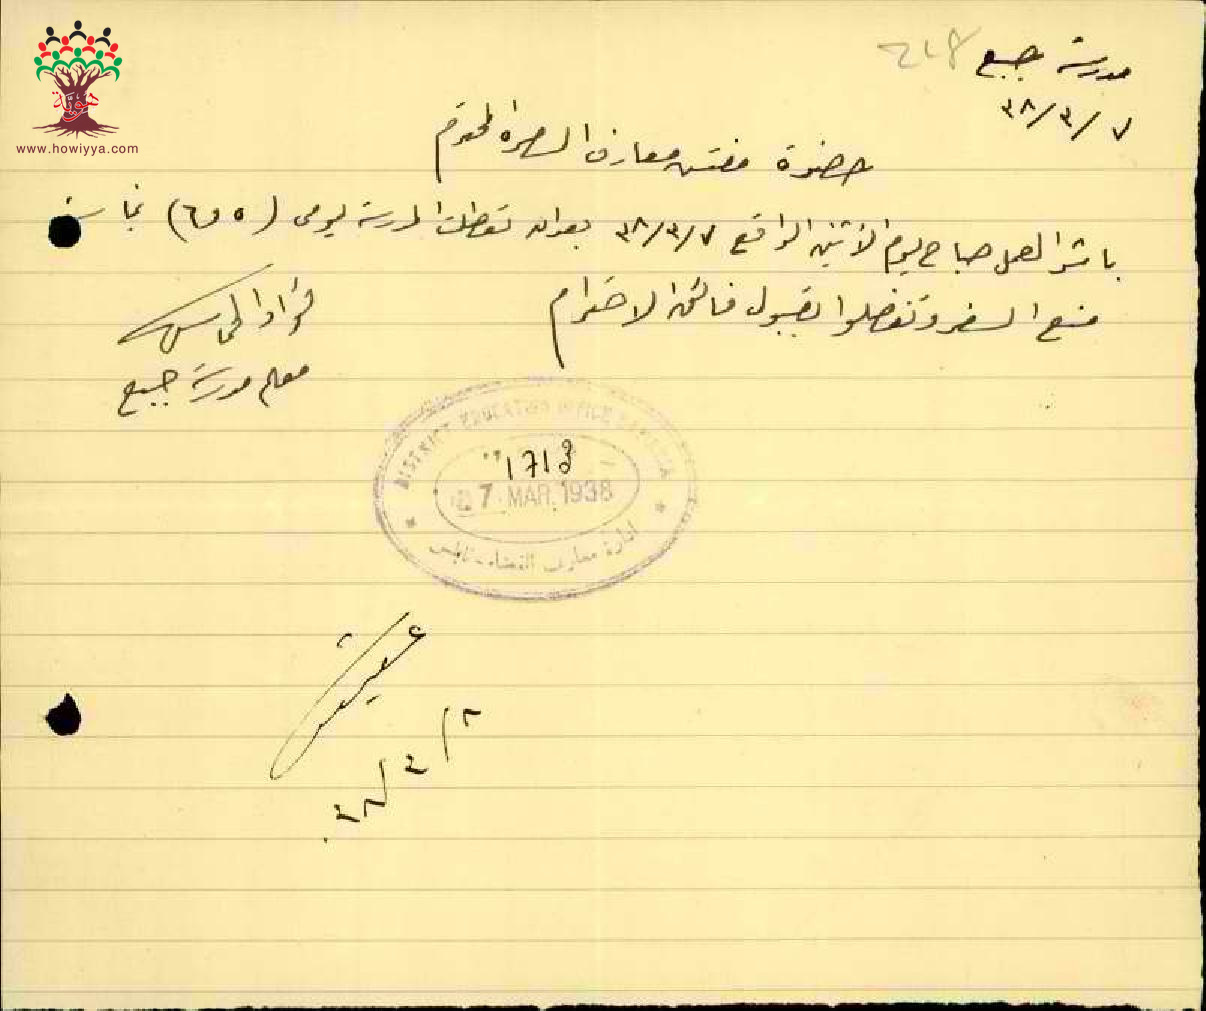 مدرسة جبع
٣٨/٣/٧
حضرة مفتش معارف السامرة المحترم
باشرت العمل صباح يوم الاثنين الواقع ٣٨/٣/٧ بعد ان تعطلت المدرسة يومي (٥ و ٦) بمناسبة
منع السفر وتفضلوا بقبول فائق الاحترام
فؤاد
معلم مدرسة جبع
DISTRICT EDUCATION OFFICE
1713
7 MAR. 1938
ادارة معارف القضاء - نابلس
٣٨/٣/٨
هوية
www.howiyya.com